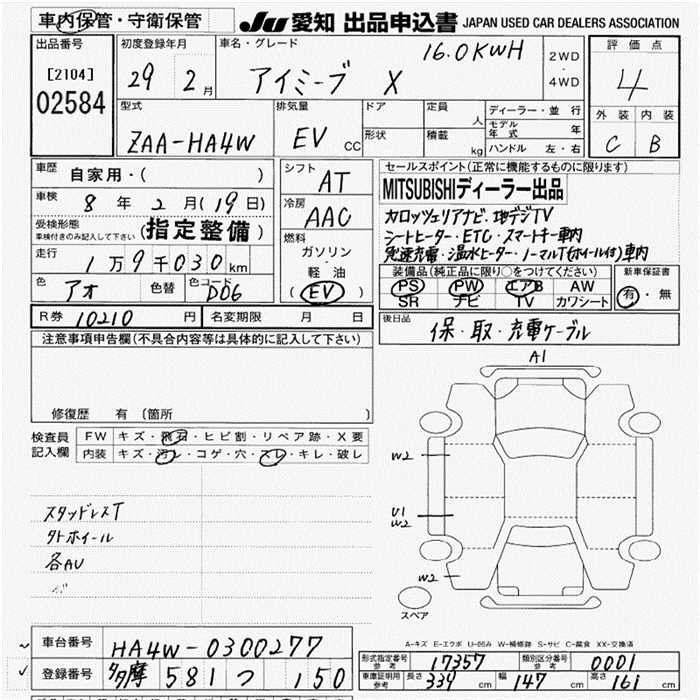 車内保管・守衛保管
JU 愛知 出品申込書 JAPAN USED CAR DEALERS ASSOCIATION
出品番号
[2104]
02584
初度登録年月
29 2月
車名・グレード
アイミーブ X
16.0KWH
2WD
・
4WD
評価点
4
外装 内装
C B
型式
ZAA-HA4W
排気量
EV CC
ドア
形状
定員 人
積載 kg
ディーラー・並 行
モデル年式 年
ハンドル 左・右
車歴 自家用・( )
車検 8年2月(19日)
受検形態
車検付きのみ記入して下さい (指定整備)
走行 1万9千030km
色 アオ 色替 色コード D06
シフト
AT
冷房
AAC
燃料
ガソリン
・
軽油
(EV)
セールスポイント(正常に機能するものに限ります)
MITSUBISHIディーラー出品
カロッツェリアナビ・地デジTV
シートヒーター・ETC・スマートキー車内
急速充電・温水ヒーター・ノーマルT(ホイール付)車内
装備品(純正品に限り○をつけてください)
PS PW エアB AW
SR ナビ TV カワシート
新車保証書
有・無
R券 10210円 名変期限 月 日
後日品
保・取・充電ケーブル
注意事項申告欄(不具合内容等は具体的に記入して下さい)
修復歴 有(箇所 )
検査員
記入欄
FW キズ・飛石・ヒビ割・リペア跡・X要
内装 キズ・汚レ・コゲ・穴・スレ・キレ・破レ
スタッドレスT
外ホイール
各AU
A1
W2
U1
W2
W2
スペア
A-キズ E-エクボ U-凹み W-補修跡 S-サビ C-腐食 XX-交換済
車台番号 HA4W-0300277
登録番号 多摩 581 つ 150
形式指定番号
参考 17357
類別区分番号
参考 0001
車庫証明用
参考 長さ 339 幅 147 高さ 161